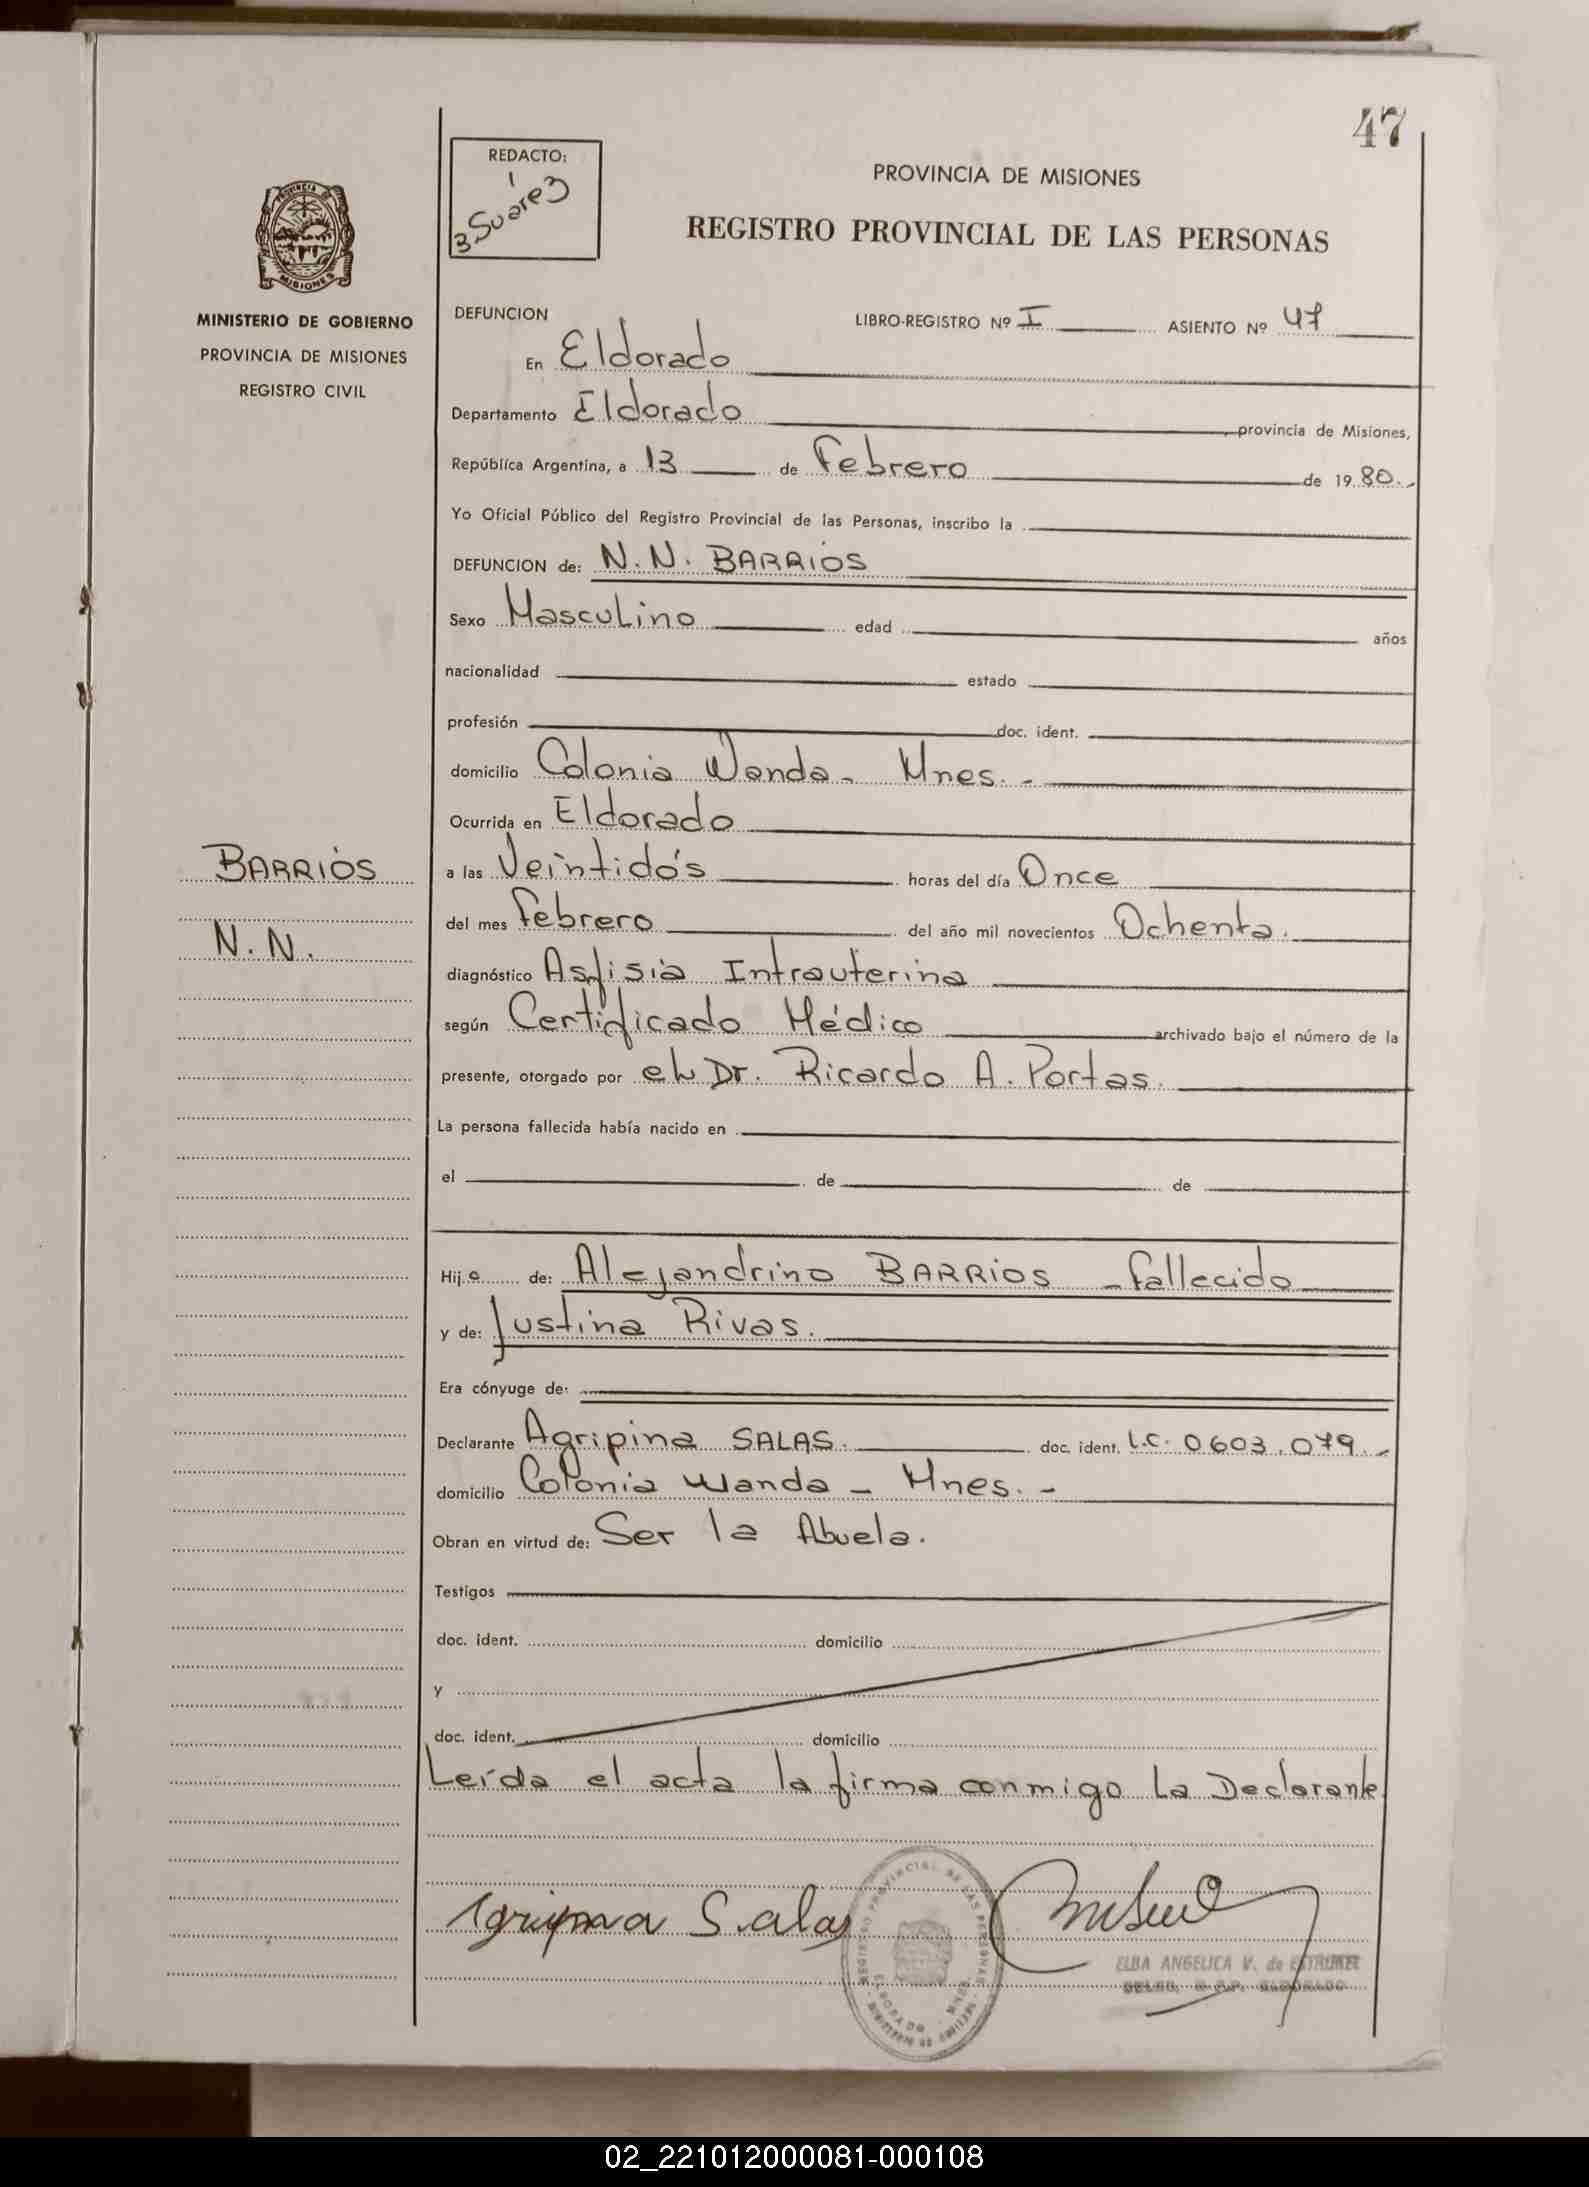 47
REDACTO:
Suarez
PROVINCIA DE MISIONES
REGISTRO PROVINCIAL DE LAS PERSONAS
MINISTERIO DE GOBIERNO
PROVINCIA DE MISIONES
REGISTRO CIVIL
DEFUNCION LIBRO-REGISTRO Nº I ASIENTO Nº 47
En Eldorado
Departamento Eldorado, provincia de Misiones,
República Argentina, a 13 de Febrero de 1980.
Yo Oficial Público del Registro Provincial de las Personas, inscribo la
DEFUNCION de: N.N. BARRIOS
Sexo Masculino edad años
nacionalidad estado
profesión doc. ident.
domicilio Colonia Wanda - Mnes. -
Ocurrida en Eldorado
BARRIOS
N.N.
a las Veintidós horas del día Once
del mes Febrero del año mil novecientos Ochenta.
diagnóstico Asfisia Intrauterina
según Certificado Médico archivado bajo el número de la
presente, otorgado por el Dr. Ricardo A. Portas.
La persona fallecida había nacido en
el de de
Hijo de: Alejandrino BARRIOS - fallecido
y de: Justina Rivas.
Era cónyuge de:
Declarante Agripina SALAS. doc. ident. L.C. 0603.079.
domicilio Colonia Wanda - Mnes. -
Obran en virtud de: Ser la Abuela.
Testigos
doc. ident. domicilio
y
doc. ident. domicilio
Leída el acta la firma conmigo La Declarante.
Agripina Salas
REGISTRO PROVINCIAL DE LAS PERSONAS
ELDORADO
ELBA ANGELICA V. de
02_221012000081-000108